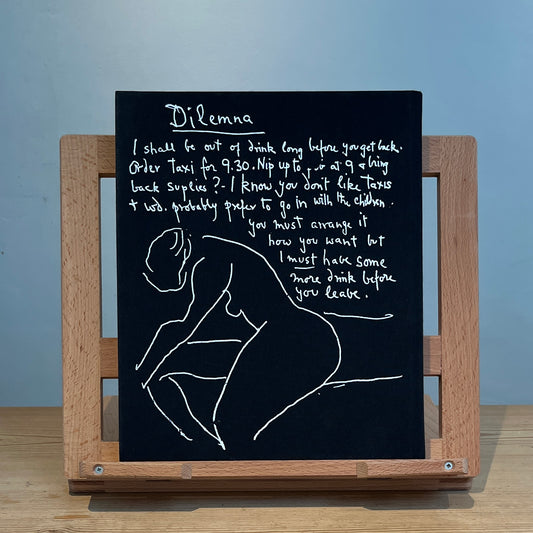 Dilemna
I shall be out of drink long before you get back.
Order Taxi for 9.30. Nip up to at 9 & bring
back suplies?- I know you don't like Taxis
+ wd. probably prefer to go in with the children.
you must arrange it
how you want but
I must have some
more drink before
you leave.